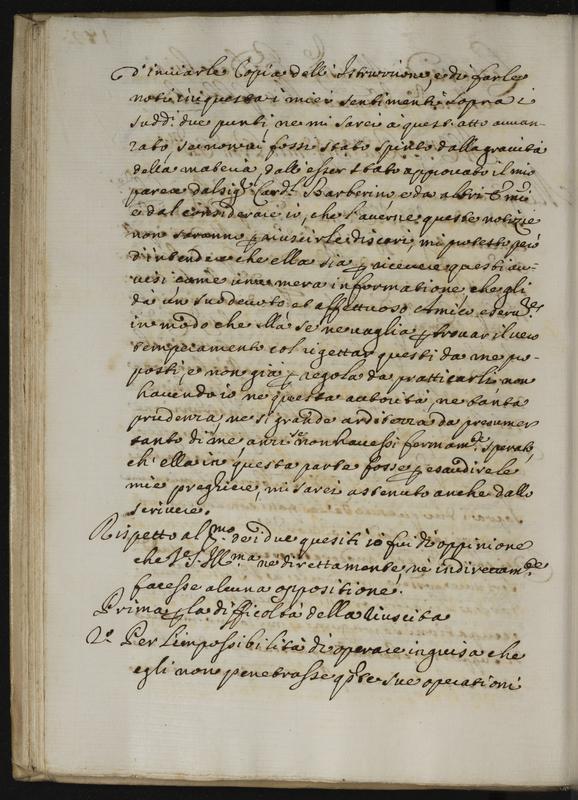 d'inviarle Copia dell'Istruzzione, e di farle
noti in questa i miei sentimenti sopra i
sudd.i due punti, ne mi sarei à quest'atto avvan-
zato, se non vi fossi stato spinto dalla gravità
della materia, dall'esser stato approvato il mio
parere dal sig.r Card.l Barberino e da altri
e dal considerare io, che l'averne queste notizie
non saranno p riuscirle discari, mi protesto però
d'intendere che ella sia p ricevere questi av-
visi come una mera informatione, che gli
dà un suo devoto, et affettuoso Amico, e ser.re
in modo che ella se ne vaglia p trovar il vero
temperamento col rigettar questi da me pro-
posti, e non già p regola da pratticarli non
havendo io ne questa autorità, ne tanta
prudenza, ne sì grande arditezza da presumer
tanto di me, anzi se non havessi fermam.te sperato,
ch'ella in questa parte fosse p esaudire le
mie preghiere, mi sarei astenuto anche dallo
scrivere.
Rispetto al p.mo dei due quesiti io fui di oppinione
che V.S. Ill.ma ne direttamente, ne indirettam.te
facesse alcuna oppositione.
Prima p la difficoltà della riuscita
2.o Per l'impossibilità di operare in guisa che
egli non penetrasse q.te sue operationi